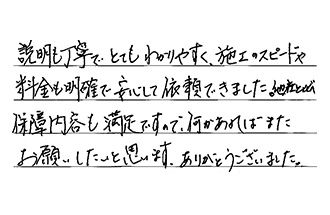 説明も丁寧でとてもわかりやすく、施工のスピードや
料金も明確で安心して依頼できました。他社と比べ
保障内容も満足ですので、何かあればまた
お願いしたいと思います。ありがとうございました。